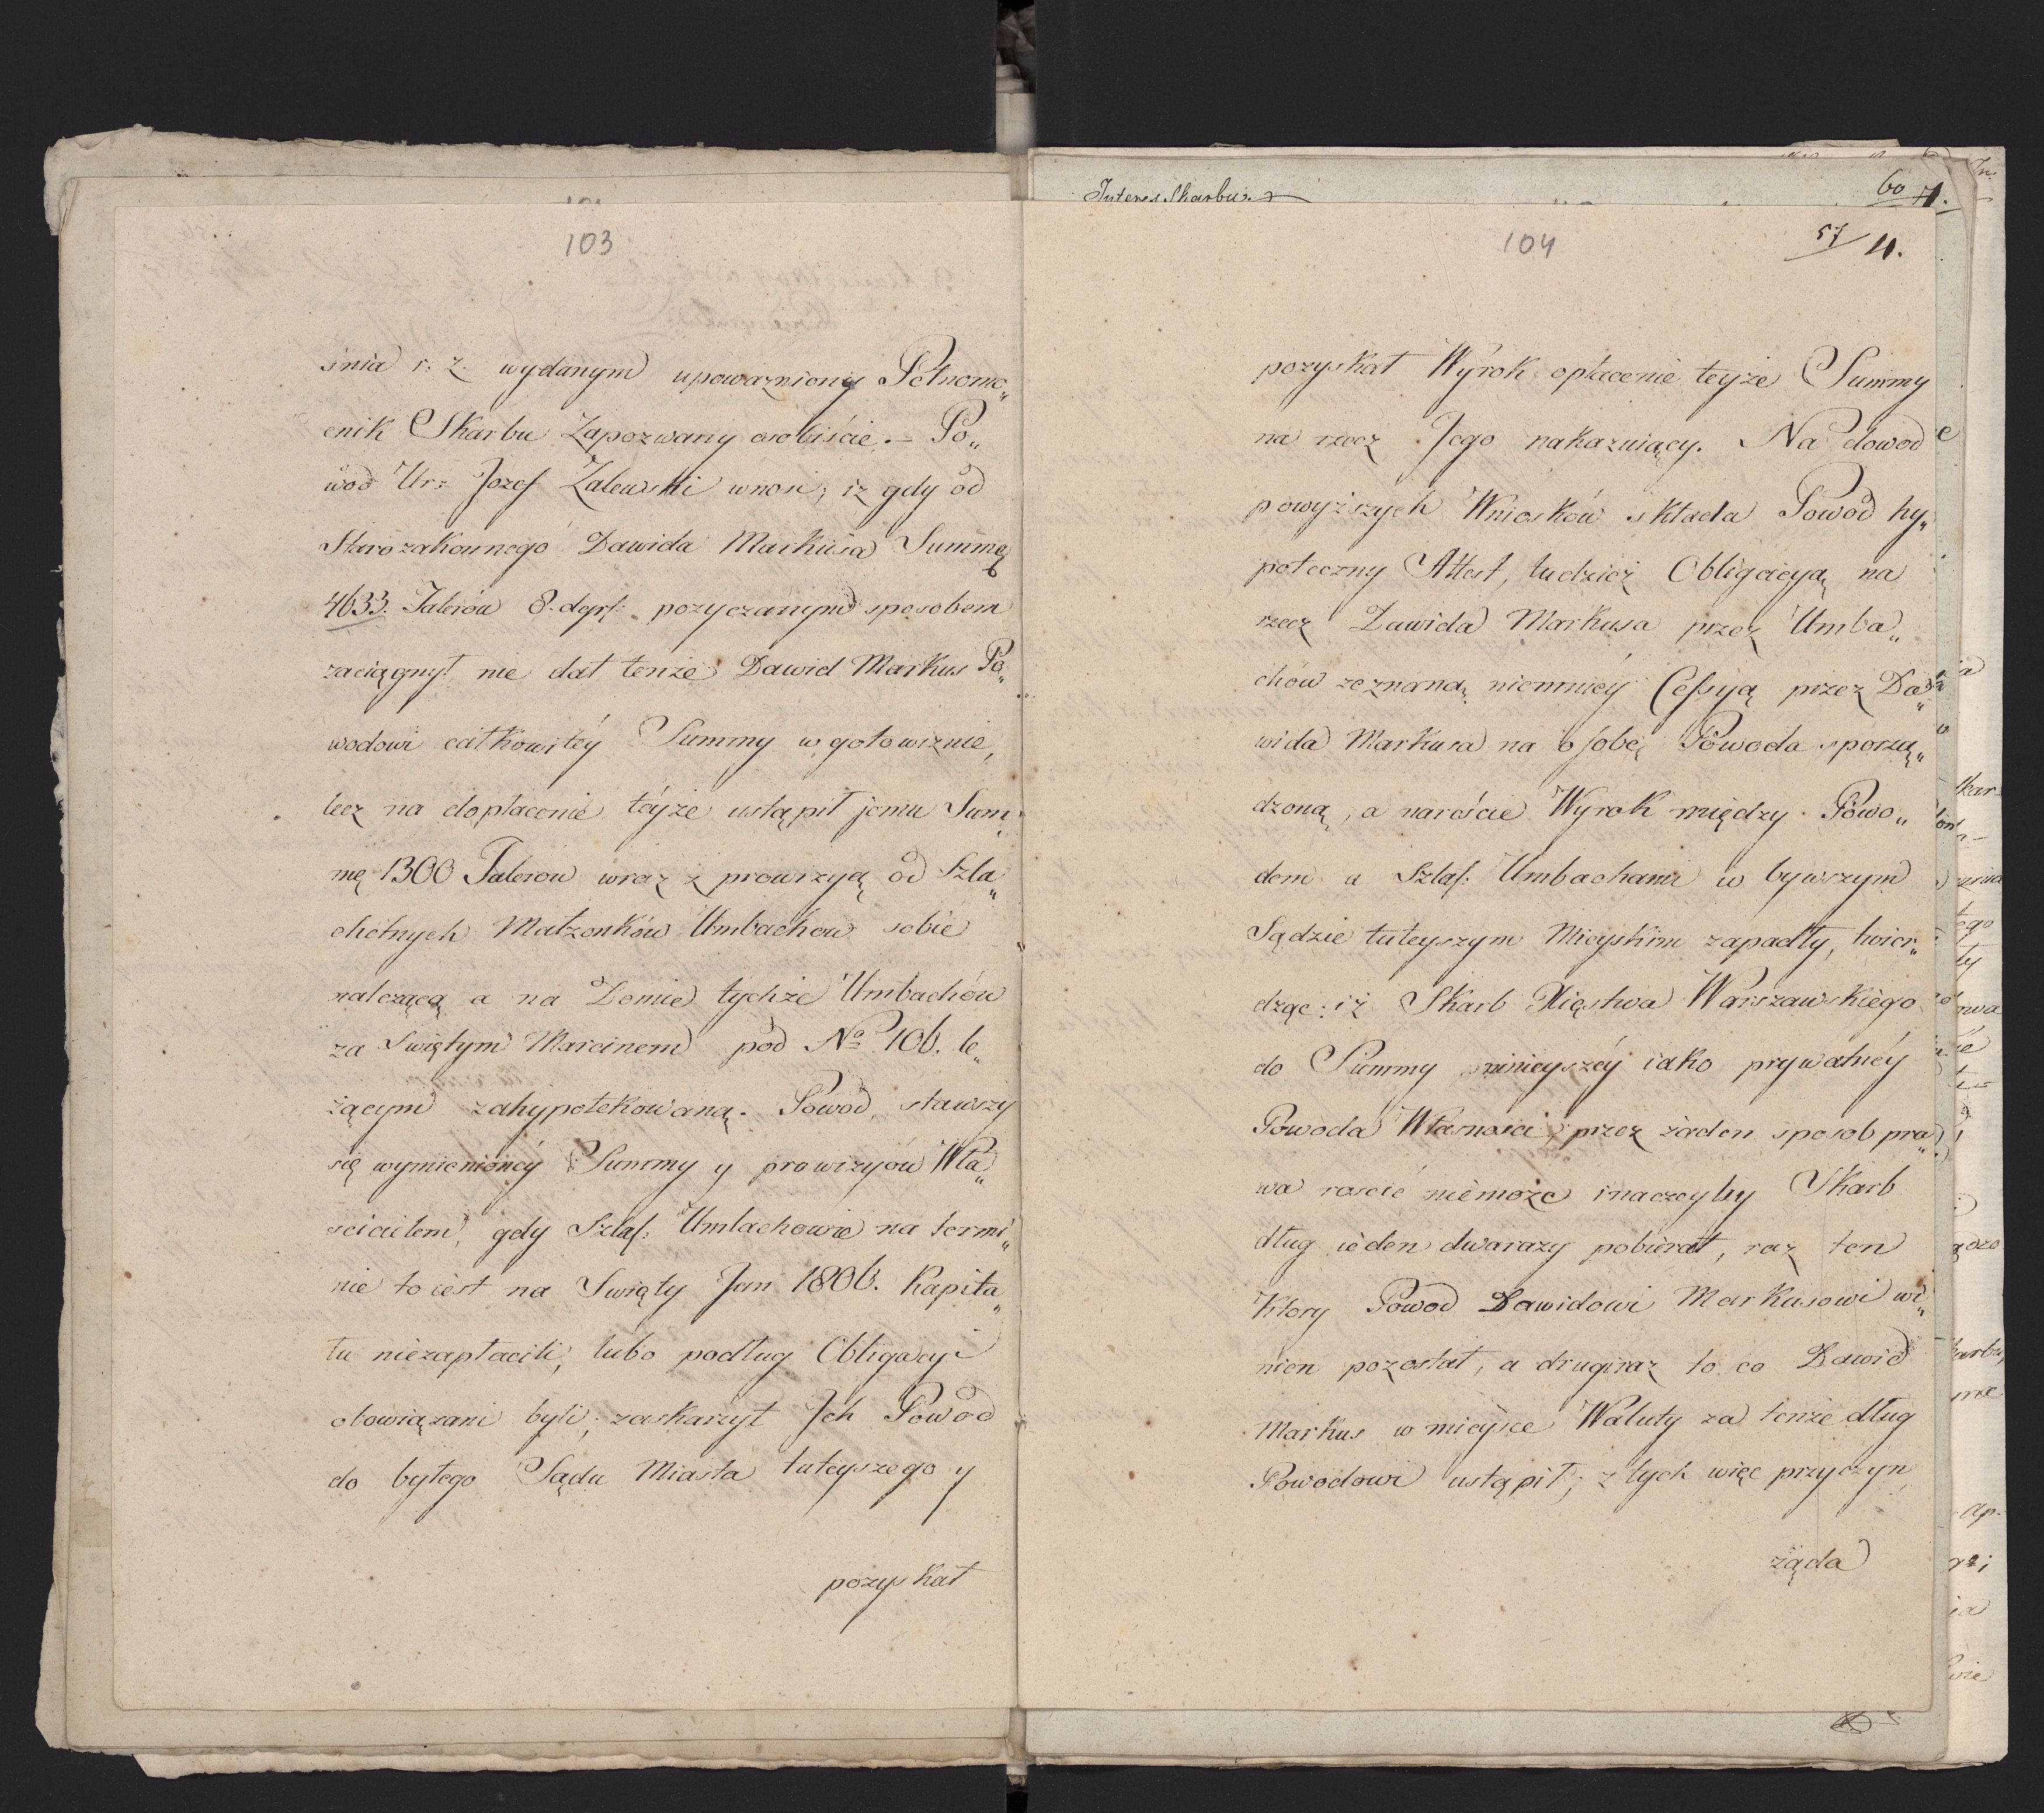 103
śnia r: z. wydanym upoważniony Pełnomo„
cnik Skarbu Zapozwany osobiście. – Po„
wod Ur: Jozef Zalewski wnosi; iz gdy od
Starozakonnego Dawida Markusa Summę
4633. Talerów 8. dgrſ: pozyczanym sposobem
zaciągnył, nie dał tenże Dawid Markus Po„
wodowi całkowitéy Summy w gotowiznie,
lecz na dopłacenie téyże ustąpił jemu Sum„
mę 1300 Talerow wraz z prowizyą od Szla„
chetnych Małzonków Umbachow sobie
należącą a na Domie tychże Umbachów
za Swiętym Marcinem pod No 106. le„
żącym zahypotekowaną. Powod, stawszy
się wymienionéy Summy y prowizyów Wła„
ścicielem, gdy Szlaſ: Umbachowie na termi„
nie to iest na Swięty Jan 1806. Kapita„
łu niezapłacili, lubo podług Obligacyi
obowiązani byli; zaskarżył Ich Powod
do byłego Sądu Miasta tuteyszego y
pozyskał
Interes Skarbu
60
104
57/
11.
pozyskał Wyrok opłacenie teyże Summy
na rzecz Jego nakazuiący. Na dowod
powyższych Wniosków składa Powod hy„
poteczny Attest, tudzież Obligacyą na
rzecz Dawida Markusa przez Umba„
chów zeznaną, niemniéy Ceſsyą przez Da„
wida Markusa na osobę Powoda sporzą„
dzoną, a nareście Wyrok między Powo„
dem a Szlaſ: Umbachami w bywszym
Sądzie tuteyszym Mieyskim zapadły, twier„
dząc: iż Skarb Xięstwa Warszawskiego
do Summy ninieyszéy iako prywatnéy
Powoda Własności, przez żaden sposob pra„
wa rościć niemoże inaczeyby Skarb
dług ieden dwarazy pobierał, raz ten
ktory Powod Dawidowi Markusowi wi„
nien pozostał, a drugiraz to co Dawid
Markus w mieysce Waluty za tenże dług
Powodowi ustąpił; z tych więc przyczyn
żąda